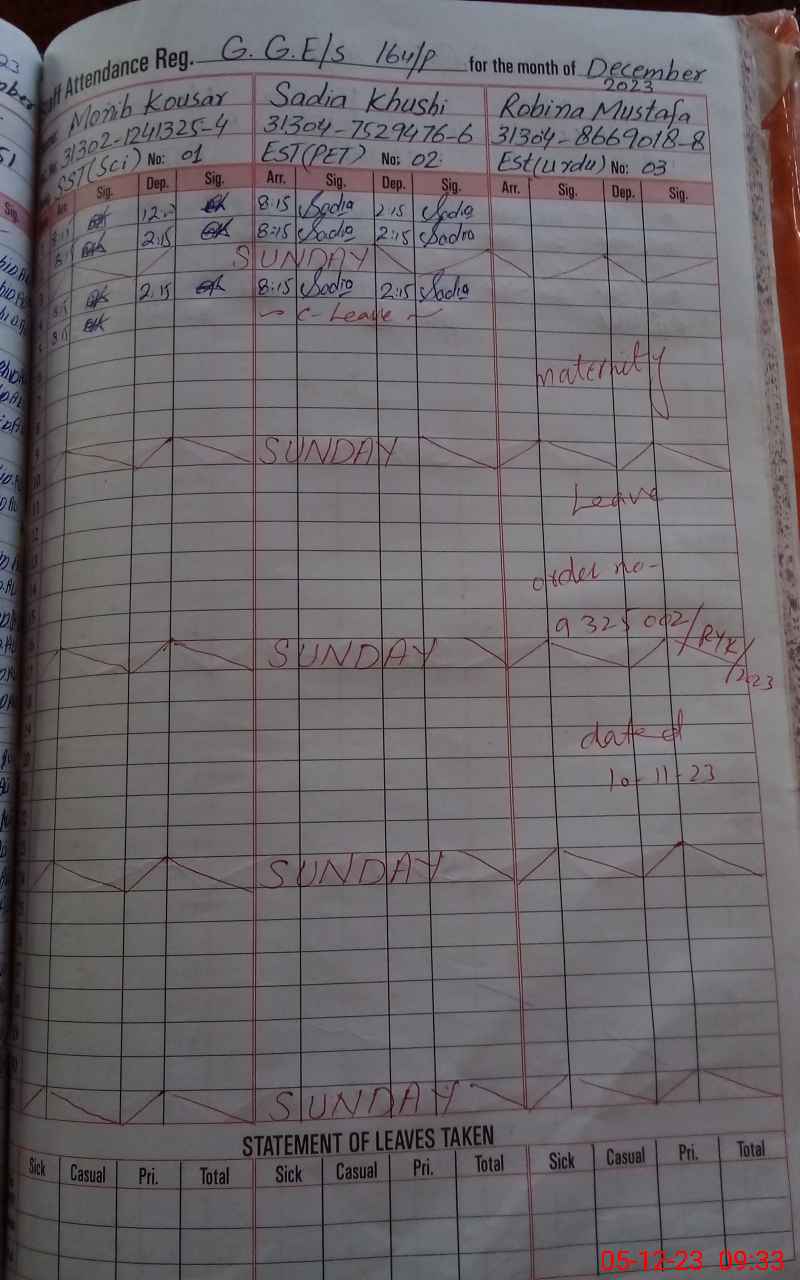 Staff Attendance Reg. G. G. E/s 164/P for the month of December 2023
Monib Kousar Sadia Khushi Robina Mustafa
31302-1241325-4 31304-7529476-6 31304-8669018-8
SST(Sci) No: 01 EST(PET) No: 02 Est(Urdu) No: 03
Arr. Sig. Dep. Sig. Arr. Sig. Dep. Sig. Arr. Sig. Dep. Sig.
8:15 Sadia 2:15 Sadia
8:15 2:15 8:15 Sadia 2:15 Sadia
SUNDAY
8:15 2:15 8:15 Sadia 2:15 Sadia
8:15 C-Leave
maternity
SUNDAY
Leave
order no-
9325002/RYK/2023
SUNDAY
dated
10-11-23
SUNDAY
SUNDAY
STATEMENT OF LEAVES TAKEN
Sick Casual Pri. Total Sick Casual Pri. Total Sick Casual Pri. Total
05-12-23 09:33